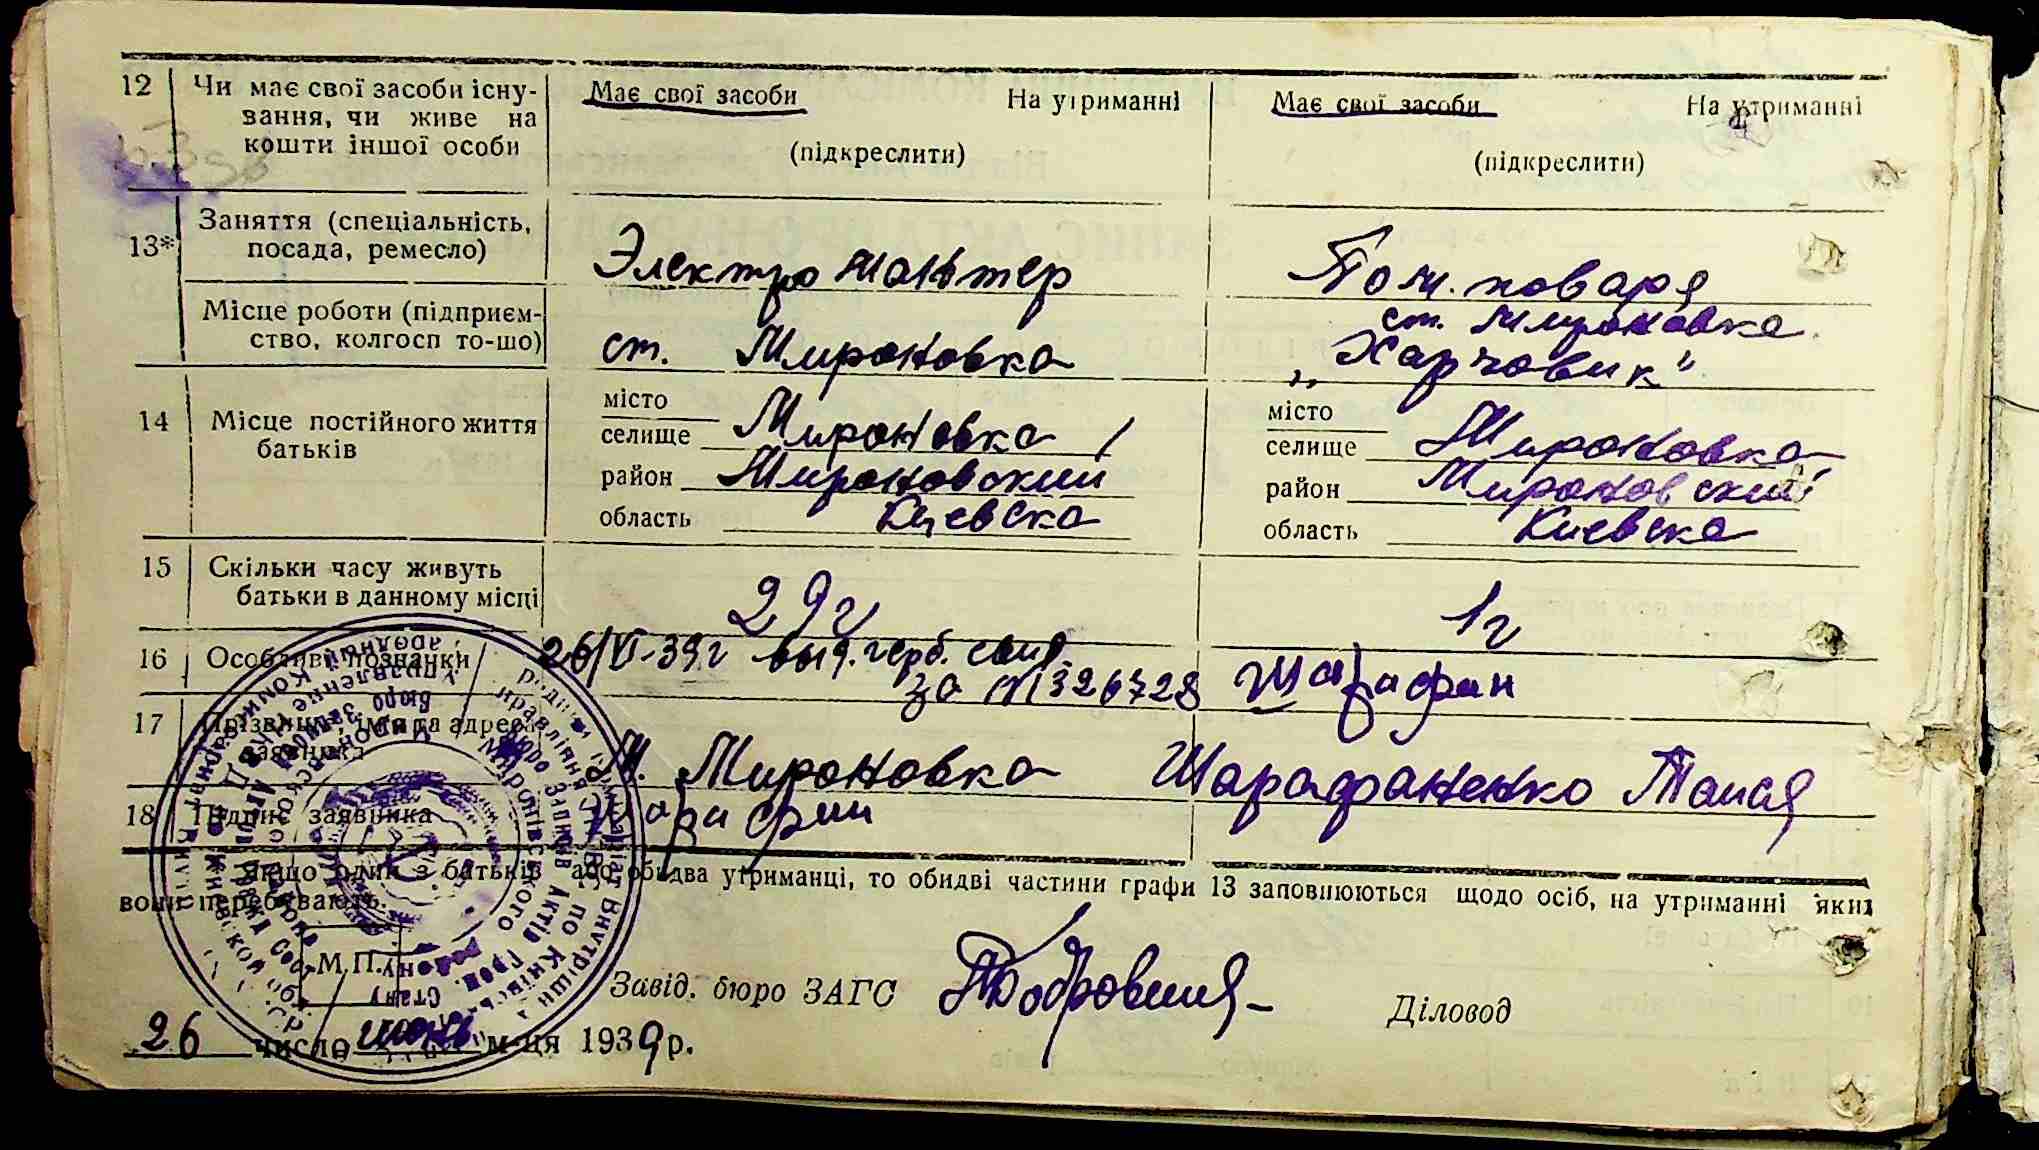 12 Чи має свої засоби існу- Має свої засоби На утриманні Має свої засоби На утриманні
вання, чи живе на
кошти іншої особи (підкреслити) (підкреслити)
13* Заняття (спеціальність,
посада, ремесло) Электро монтер Пом. повара
Місце роботи (підприєм- ст. Мироновка
ство, колгосп то-що) ст. Мироновка „Харчовик"
14 Місце постійного життя місто місто
батьків селище Мироновка селище Мироновка
район Мироновский район Мироновский
область Киевска область Киевска
15 Скільки часу живуть
батьки в данному місці 29 г 1 г
16 Особливі познанки 26/VI-39 г выд. герб. свид
за № 326728
17 Прізвище, ім'я та адреса
заявника М. Мироновка Шарафаненко Таися
18 Підпис заявника
Якщо один з батьків або обидва утриманці, то обидві частини графи 13 заповнюються щодо осіб, на утриманні яких
вони перебувають.
М.П.
Завід. бюро ЗАГС Діловод
26 число июнь м-ця 1939 р.